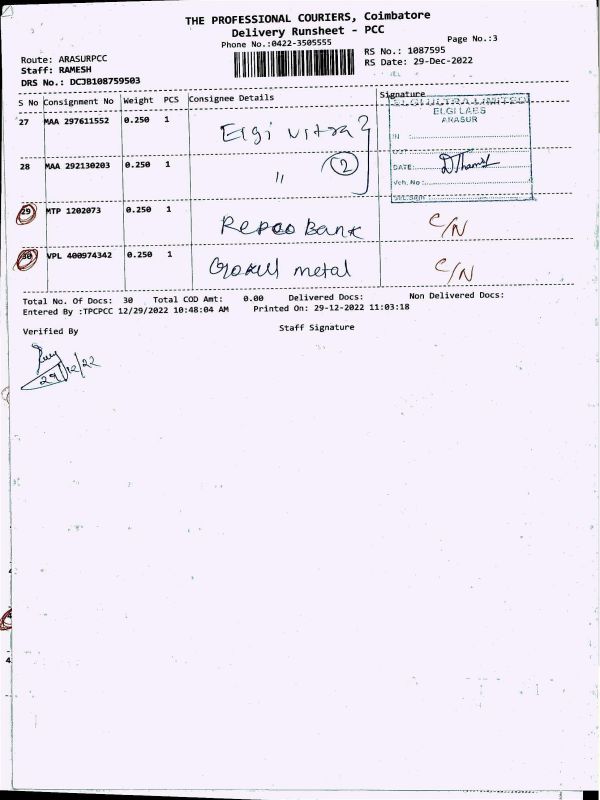 THE PROFESSIONAL COURIERS, Coimbatore
Delivery Runsheet - PCC
Phone No.:0422-3505555
Page No.:3
Route: ARASURPCC
RS No.: 1087595
Staff: RAMESH
RS Date: 29-Dec-2022
DRS No.: DCJB108759503
S No Consignment No Weight PCS Consignee Details Signature
27 MAA 297611552 0.250 1 Elgi Ultra
28 MAA 292130203 0.250 1 〃 2
ELGI ULTRA LIMITED
ELGI LAES
ARASUR
IN :
OUT
DATE:
Vch. No :
29 MTP 1202073 0.250 1 Repco Bank C/N
30 VPL 400974342 0.250 1 Gokul metal C/N
Total No. Of Docs: 30 Total COD Amt: 0.00 Delivered Docs: Non Delivered Docs:
Entered By :TPCPCC 12/29/2022 10:48:04 AM Printed On: 29-12-2022 11:03:18
Verified By Staff Signature
29/12/22